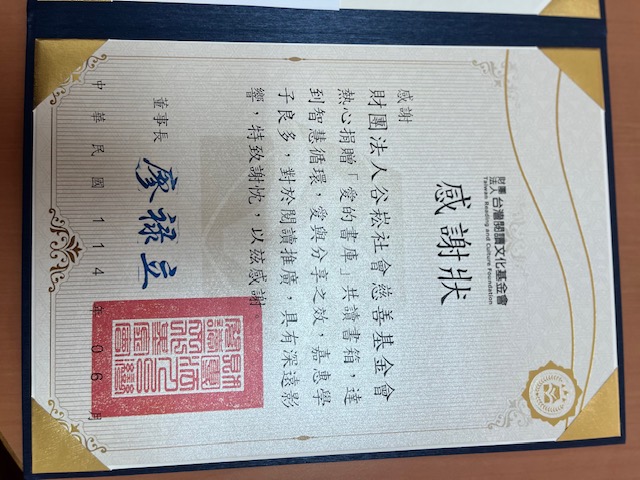 財團法人 台灣閱讀文化基金會
Taiwan Reading and Culture Foundation
感謝狀
感謝
財團法人谷崧社會慈善基金會
熱心捐贈「愛的書庫」共讀書箱，達
到智慧循環，愛與分享之效，嘉惠學
子良多，對於閱讀推廣，具有深遠影
響，特致謝忱，以茲感謝
董事長 廖祿立
中華民國114年06月